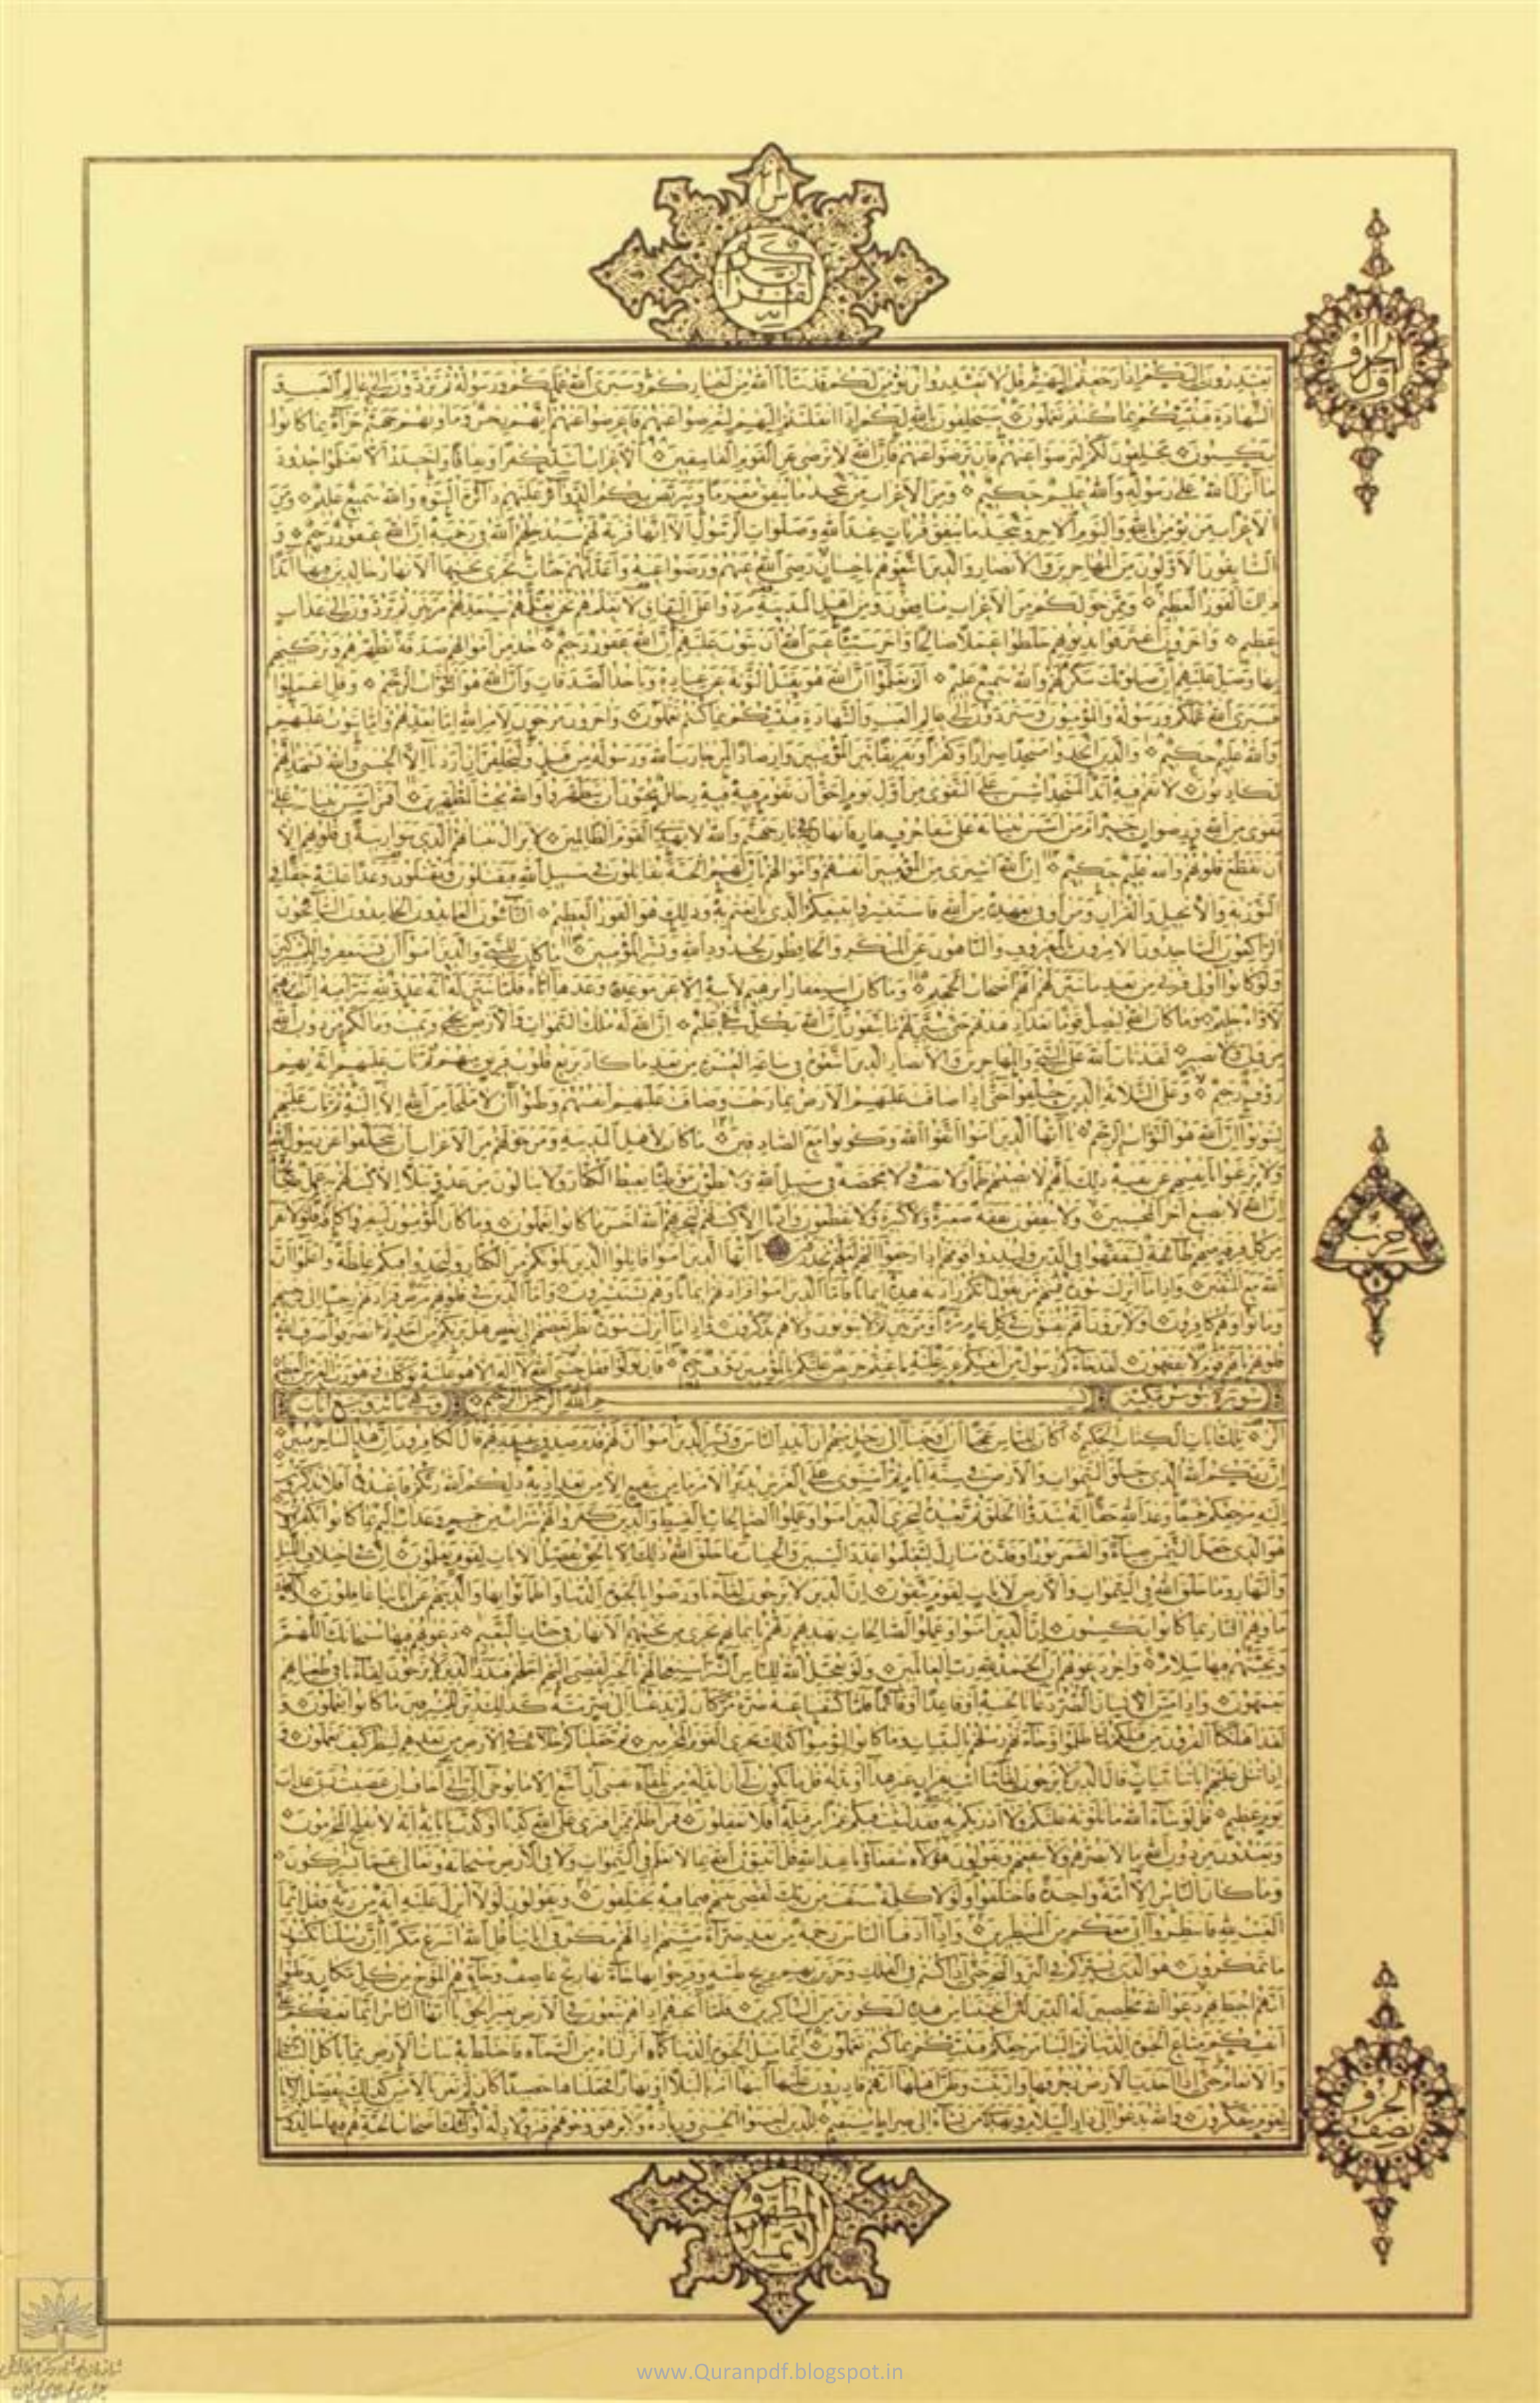 سن
انه لقران كريم
الحزو اول
يعتذرون اليكم اذا رجعتم اليهم قل لا تعتذروا لن نؤمن لكم قد نبأنا الله من اخباركم وسيرى الله عملكم ورسوله ثم تردون الى عالم الغيب و
الشهادة فينبئكم بما كنتم تعملون سيحلفون بالله لكم اذا انقلبتم اليهم لتعرضوا عنهم فاعرضوا عنهم انهم رجس ومأويهم جهنم جزاء بما كانوا
يكسبون يحلفون لكم لترضوا عنهم فان ترضوا عنهم فان الله لا يرضى عن القوم الفاسقين الاعراب اشد كفرا ونفاقا واجدر الا يعلموا حدود
ما انزل الله على رسوله والله عليم حكيم ومن الاعراب من يتخذ ما ينفق مغرما ويتربص بكم الدوائر عليهم دائرة السوء والله سميع عليم ومن
الاعراب من يؤمن بالله واليوم الاخر ويتخذ ما ينفق قربات عند الله وصلوات الرسول الا انها قربة لهم سيدخلهم الله في رحمته ان الله غفور رحيم و
السابقون الاولون من المهاجرين والانصار والذين اتبعوهم باحسان رضي الله عنهم ورضوا عنه واعد لهم جنات تجري تحتها الانهار خالدين فيها ابدا
ذلك الفوز العظيم وممن حولكم من الاعراب منافقون ومن اهل المدينة مردوا على النفاق لا تعلمهم نحن نعلمهم سنعذبهم مرتين ثم يردون الى عذاب
عظيم واخرون اعترفوا بذنوبهم خلطوا عملا صالحا واخر سيئا عسى الله ان يتوب عليهم ان الله غفور رحيم خذ من اموالهم صدقة تطهرهم وتزكيهم
بها وصل عليهم ان صلوتك سكن لهم والله سميع عليم الم يعلموا ان الله هو يقبل التوبة عن عباده ويأخذ الصدقات وان الله هو التواب الرحيم وقل اعملوا
فسيرى الله عملكم ورسوله والمؤمنون وستردون الى عالم الغيب والشهادة فينبئكم بما كنتم تعملون واخرون مرجون لامر الله اما يعذبهم واما يتوب عليهم
والله عليم حكيم والذين اتخذوا مسجدا ضرارا وكفرا وتفريقا بين المؤمنين وارصادا لمن حارب الله ورسوله من قبل وليحلفن ان اردنا الا الحسنى والله يشهد انهم
لكاذبون لا تقم فيه ابدا لمسجد اسس على التقوى من اول يوم احق ان تقوم فيه فيه رجال يحبون ان يتطهروا والله يحب المطهرين افمن اسس بنيانه على
تقوى من الله ورضوان خير ام من اسس بنيانه على شفا جرف هار فانهار به في نار جهنم والله لا يهدي القوم الظالمين لا يزال بنيانهم الذي بنوا ريبة في قلوبهم الا
ان تقطع قلوبهم والله عليم حكيم ان الله اشترى من المؤمنين انفسهم واموالهم بان لهم الجنة يقاتلون في سبيل الله فيقتلون ويقتلون وعدا عليه حقا في
التورية والانجيل والقران ومن اوفى بعهده من الله فاستبشروا ببيعكم الذي بايعتم به وذلك هو الفوز العظيم التائبون العابدون الحامدون السائحون
الراكعون الساجدون الامرون بالمعروف والناهون عن المنكر والحافظون لحدود الله وبشر المؤمنين ما كان للنبي والذين امنوا ان يستغفروا للمشركين
ولو كانوا اولي قربى من بعد ما تبين لهم انهم اصحاب الجحيم وما كان استغفار ابرهيم لابيه الا عن موعدة وعدها اياه فلما تبين له انه عدو لله تبرأ منه ان ابرهيم
لاواه حليم وما كان الله ليضل قوما بعد اذ هديهم حتى يبين لهم ما يتقون ان الله بكل شيء عليم ان الله له ملك السموات والارض يحيي ويميت وما لكم من دون الله
من ولي ولا نصير لقد تاب الله على النبي والمهاجرين والانصار الذين اتبعوه في ساعة العسرة من بعد ما كاد يزيغ قلوب فريق منهم ثم تاب عليهم انه بهم
رؤف رحيم وعلى الثلاثة الذين خلفوا حتى اذا ضاقت عليهم الارض بما رحبت وضاقت عليهم انفسهم وظنوا ان لا ملجأ من الله الا اليه ثم تاب عليهم
ليتوبوا ان الله هو التواب الرحيم يا ايها الذين امنوا اتقوا الله وكونوا مع الصادقين ما كان لاهل المدينة ومن حولهم من الاعراب ان يتخلفوا عن رسول الله
ولا يرغبوا بانفسهم عن نفسه ذلك بانهم لا يصيبهم ظمأ ولا نصب ولا مخمصة في سبيل الله ولا يطؤن موطئا يغيظ الكفار ولا ينالون من عدو نيلا الا كتب لهم به عمل صالح
ان الله لا يضيع اجر المحسنين ولا ينفقون نفقة صغيرة ولا كبيرة ولا يقطعون واديا الا كتب لهم ليجزيهم الله احسن ما كانوا يعملون وما كان المؤمنون لينفروا كافة فلولا نفر
من كل فرقة منهم طائفة ليتفقهوا في الدين ولينذروا قومهم اذا رجعوا اليهم لعلهم يحذرون يا ايها الذين امنوا قاتلوا الذين يلونكم من الكفار وليجدوا فيكم غلظة واعلموا ان
الله مع المتقين واذا ما انزلت سورة فمنهم من يقول ايكم زادته هذه ايمانا فاما الذين امنوا فزادتهم ايمانا وهم يستبشرون واما الذين في قلوبهم مرض فزادتهم رجسا الى رجسهم
وماتوا وهم كافرون اولا يرون انهم يفتنون في كل عام مرة او مرتين ثم لا يتوبون ولا هم يذكرون واذا ما انزلت سورة نظر بعضهم الى بعض هل يريكم من احد ثم انصرفوا صرف الله
قلوبهم بانهم قوم لا يفقهون لقد جاءكم رسول من انفسكم عزيز عليه ما عنتم حريص عليكم بالمؤمنين رؤف رحيم فان تولوا فقل حسبي الله لا اله الا هو عليه توكلت وهو رب العرش العظيم
سورة يونس مكية بسم الله الرحمن الرحيم وهي مائة وتسع ايات
الر تلك ايات الكتاب الحكيم اكان للناس عجبا ان اوحينا الى رجل منهم ان انذر الناس وبشر الذين امنوا ان لهم قدم صدق عند ربهم قال الكافرون ان هذا لساحر مبين
ان ربكم الله الذي خلق السموات والارض في ستة ايام ثم استوى على العرش يدبر الامر ما من شفيع الا من بعد اذنه ذلكم الله ربكم فاعبدوه افلا تذكرون
اليه مرجعكم جميعا وعد الله حقا انه يبدؤا الخلق ثم يعيده ليجزي الذين امنوا وعملوا الصالحات بالقسط والذين كفروا لهم شراب من حميم وعذاب اليم بما كانوا يكفرون
هو الذي جعل الشمس ضياء والقمر نورا وقدره منازل لتعلموا عدد السنين والحساب ما خلق الله ذلك الا بالحق يفصل الايات لقوم يعلمون ان في اختلاف الليل
والنهار وما خلق الله في السموات والارض لايات لقوم يتقون ان الذين لا يرجون لقاءنا ورضوا بالحيوة الدنيا واطمأنوا بها والذين هم عن اياتنا غافلون اولئك
مأويهم النار بما كانوا يكسبون ان الذين امنوا وعملوا الصالحات يهديهم ربهم بايمانهم تجري من تحتهم الانهار في جنات النعيم دعويهم فيها سبحانك اللهم
وتحيتهم فيها سلام واخر دعويهم ان الحمد لله رب العالمين ولو يعجل الله للناس الشر استعجالهم بالخير لقضي اليهم اجلهم فنذر الذين لا يرجون لقاءنا في طغيانهم
يعمهون واذا مس الانسان الضر دعانا لجنبه او قاعدا او قائما فلما كشفنا عنه ضره مر كان لم يدعنا الى ضر مسه كذلك زين للمسرفين ما كانوا يعملون و
لقد اهلكنا القرون من قبلكم لما ظلموا وجاءتهم رسلهم بالبينات وما كانوا ليؤمنوا كذلك نجزي القوم المجرمين ثم جعلناكم خلائف في الارض من بعدهم لننظر كيف تعملون و
اذا تتلى عليهم اياتنا بينات قال الذين لا يرجون لقاءنا ائت بقران غير هذا او بدله قل ما يكون لي ان ابدله من تلقاء نفسي ان اتبع الا ما يوحى الي اني اخاف ان عصيت ربي عذاب
يوم عظيم قل لو شاء الله ما تلوته عليكم ولا ادريكم به فقد لبثت فيكم عمرا من قبله افلا تعقلون فمن اظلم ممن افترى على الله كذبا او كذب باياته انه لا يفلح المجرمون
ويعبدون من دون الله ما لا يضرهم ولا ينفعهم ويقولون هؤلاء شفعاؤنا عند الله قل اتنبئون الله بما لا يعلم في السموات ولا في الارض سبحانه وتعالى عما يشركون
وما كان الناس الا امة واحدة فاختلفوا ولولا كلمة سبقت من ربك لقضي بينهم فيما فيه يختلفون ويقولون لولا انزل عليه اية من ربه فقل انما
الغيب لله فانتظروا اني معكم من المنتظرين واذا اذقنا الناس رحمة من بعد ضراء مستهم اذا لهم مكر في اياتنا قل الله اسرع مكرا ان رسلنا يكتبون
ما تمكرون هو الذي يسيركم في البر والبحر حتى اذا كنتم في الفلك وجرين بهم بريح طيبة وفرحوا بها جاءتها ريح عاصف وجاءهم الموج من كل مكان وظنوا
انهم احيط بهم دعوا الله مخلصين له الدين لئن انجيتنا من هذه لنكونن من الشاكرين فلما انجيهم اذا هم يبغون في الارض بغير الحق يا ايها الناس انما بغيكم على
انفسكم متاع الحيوة الدنيا ثم الينا مرجعكم فننبئكم بما كنتم تعملون انما مثل الحيوة الدنيا كماء انزلناه من السماء فاختلط به نبات الارض مما يأكل الناس
والانعام حتى اذا اخذت الارض زخرفها وازينت وظن اهلها انهم قادرون عليها اتيها امرنا ليلا او نهارا فجعلناها حصيدا كان لم تغن بالامس كذلك نفصل الايات
لقوم يتفكرون والله يدعوا الى دار السلام ويهدي من يشاء الى صراط مستقيم للذين احسنوا الحسنى وزيادة ولا يرهق وجوههم قتر ولا ذلة اولئك اصحاب الجنة هم فيها خالدون
حزب
الحزو نصف
لا يمسه الا المطهرون
www.Quranpdf.blogspot.in